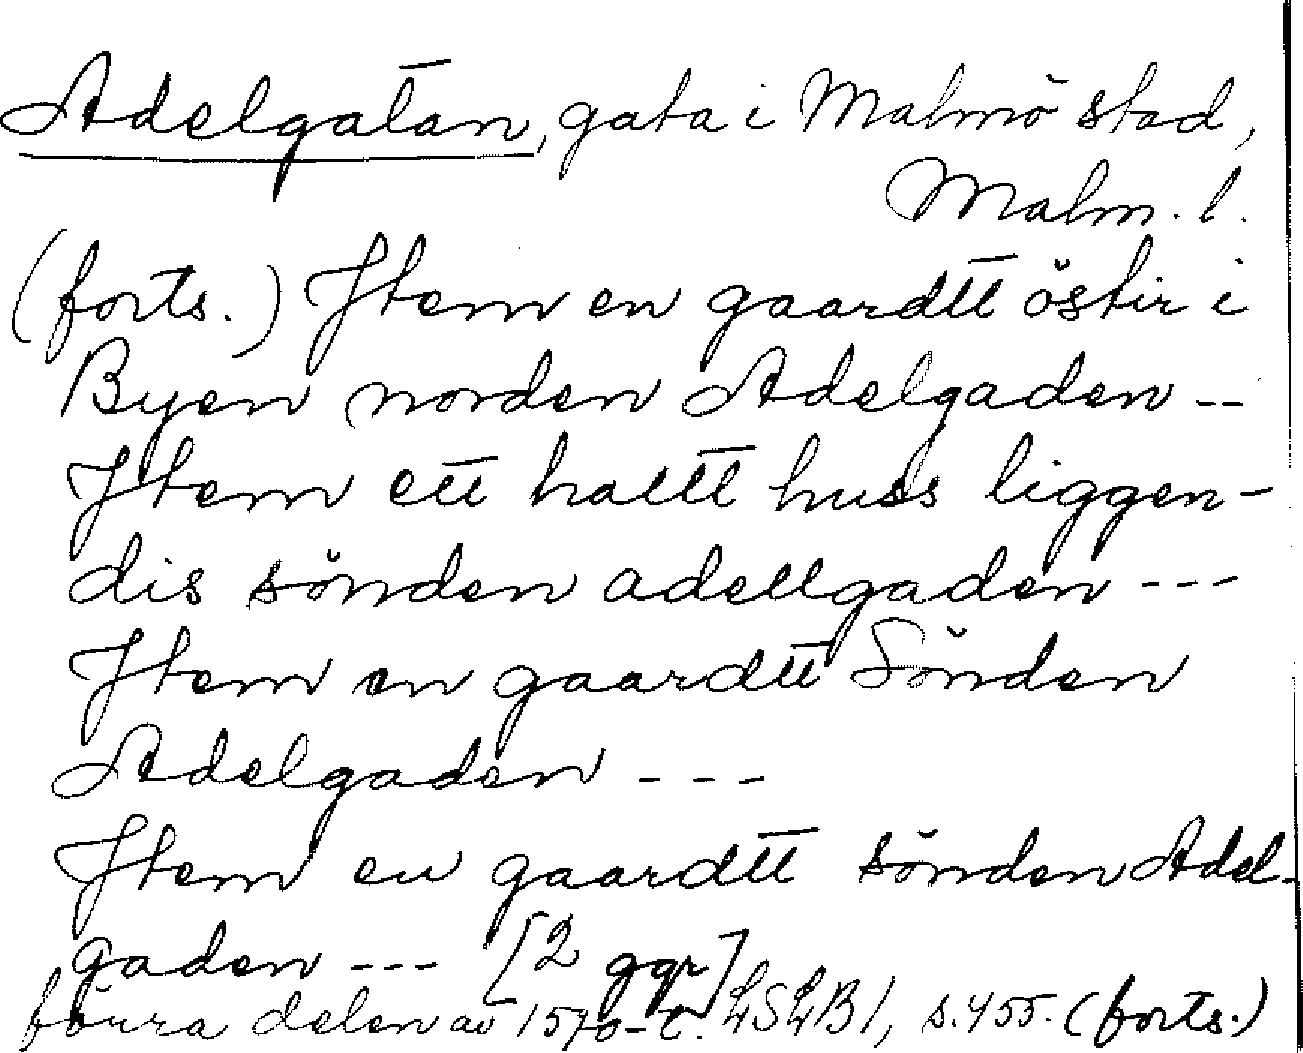 Adelgatan, gata i Malmö stad,
Malm. l.
(forts.) Item en gaardtt östir i
Byen norden Adelgaden --
Item ett halttt huss liggen-
dis sönden adellgaden ---
Item en gaardtt Sönden
Adelgaden ---
Item en gaardtt sönden Adel-
gaden --- [2 ggr]
förra delen av 1570-t. LSLB1, s. 455. (forts.)